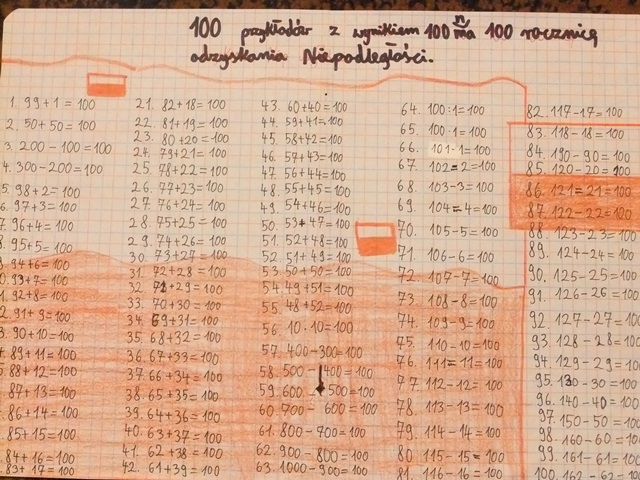 100 przykładów z wynikiem 100 na 100 rocznicę
odzyskania Niepodległości.
1. 99+1=100
2. 50+50=100
3. 200-100=100
4. 300-200=100
5. 98+2=100
6. 97+3=100
7. 96+4=100
8. 95+5=100
9. 94+6=100
0. 93+7=100
1. 92+8=100
2. 91+9=100
3. 90+10=100
4. 89+11=100
5. 88+12=100
87+13=100
86+14=100
85+15=100
84+16=100
83+17=100
21. 82+18=100
22. 81+19=100
23. 80+20=100
24. 79+21=100
25. 78+22=100
26. 77+23=100
27. 76+24=100
28. 75+25=100
29. 74+26=100
30. 73+27=100
31. 72+28=100
32. 71+29=100
33. 70+30=100
34. 69+31=100
35. 68+32=100
36. 67+33=100
37. 66+34=100
38. 65+35=100
39. 64+36=100
40. 63+37=100
41. 62+38=100
42. 61+39=100
43. 60+40=100
44. 59+41=100
45. 58+42=100
46. 57+43=100
47. 56+44=100
48. 55+45=100
49. 54+46=100
50. 53+47=100
51. 52+48=100
52. 51+49=100
53. 50+50=100
54. 49+51=100
55. 48+52=100
56. 10·10=100
57. 400-300=100
58. 500-400=100
59. 600-500=100
60. 700-600=100
61. 800-700=100
62. 900-800=100
63. 1000-900=100
64. 100:1=100
65. 100·1=100
66. 101-1=100
67. 102-2=100
68. 103-3=100
69. 104-4=100
70. 105-5=100
71. 106-6=100
72. 107-7=100
73. 108-8=100
74. 109-9=100
75. 110-10=100
76. 111-11=100
77. 112-12=100
78. 113-13=100
79. 114-14=100
80. 115-15=100
81. 116-16=100
82. 117-17=100
83. 118-18=100
84. 190-90=100
85. 120-20=100
86. 121-21=100
87. 122-22=100
88. 123-23=100
89. 124-24=100
90. 125-25=100
91. 126-26=100
92. 127-27=100
93. 128-28=100
94. 129-29=100
95. 130-30=100
96. 140-40=100
97. 150-50=100
98. 160-60=100
99. 161-61=100
100. 162-62=100